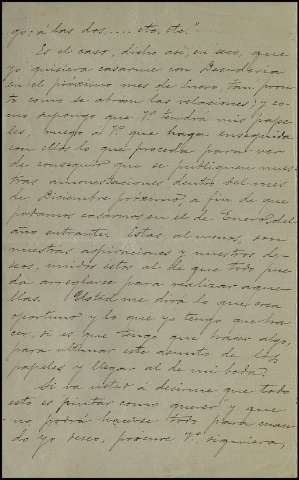 go; á las dos..... etc. etc."
Es el caso, dicho así, en seco, que
yo quisiera casarme con Desideria
en el próximo mes de Enero, tan pron-
to como se abran las velaciones; y co-
mo supongo que Vd. tendrá mis pape-
les, ruego á Vd. que haga enseguida
con ellos lo que proceda para ver
de conseguir que se publiquen nues-
tras amonestaciones dentro del mes
de Diciembre próximo, á fin de que
podamos casarnos en el de Enero, del
año entrante. Estas, al menos, son
nuestras aspiraciones y nuestros de-
seos, unidos estos al de que todo pue-
da arreglarse para realizar aque-
llas. Usted me dirá lo que crea
oportuno y lo que yo tengo que ha-
cer, si es que tengo que hacer algo,
para ultimar este asunto de los
papeles y llegar al de mi boda.
Si va usted á decirme que todo
esto es pintar como querer y que
no podrá hacerse todo para cuan-
do yo deseo, procure Vd. siquiera,